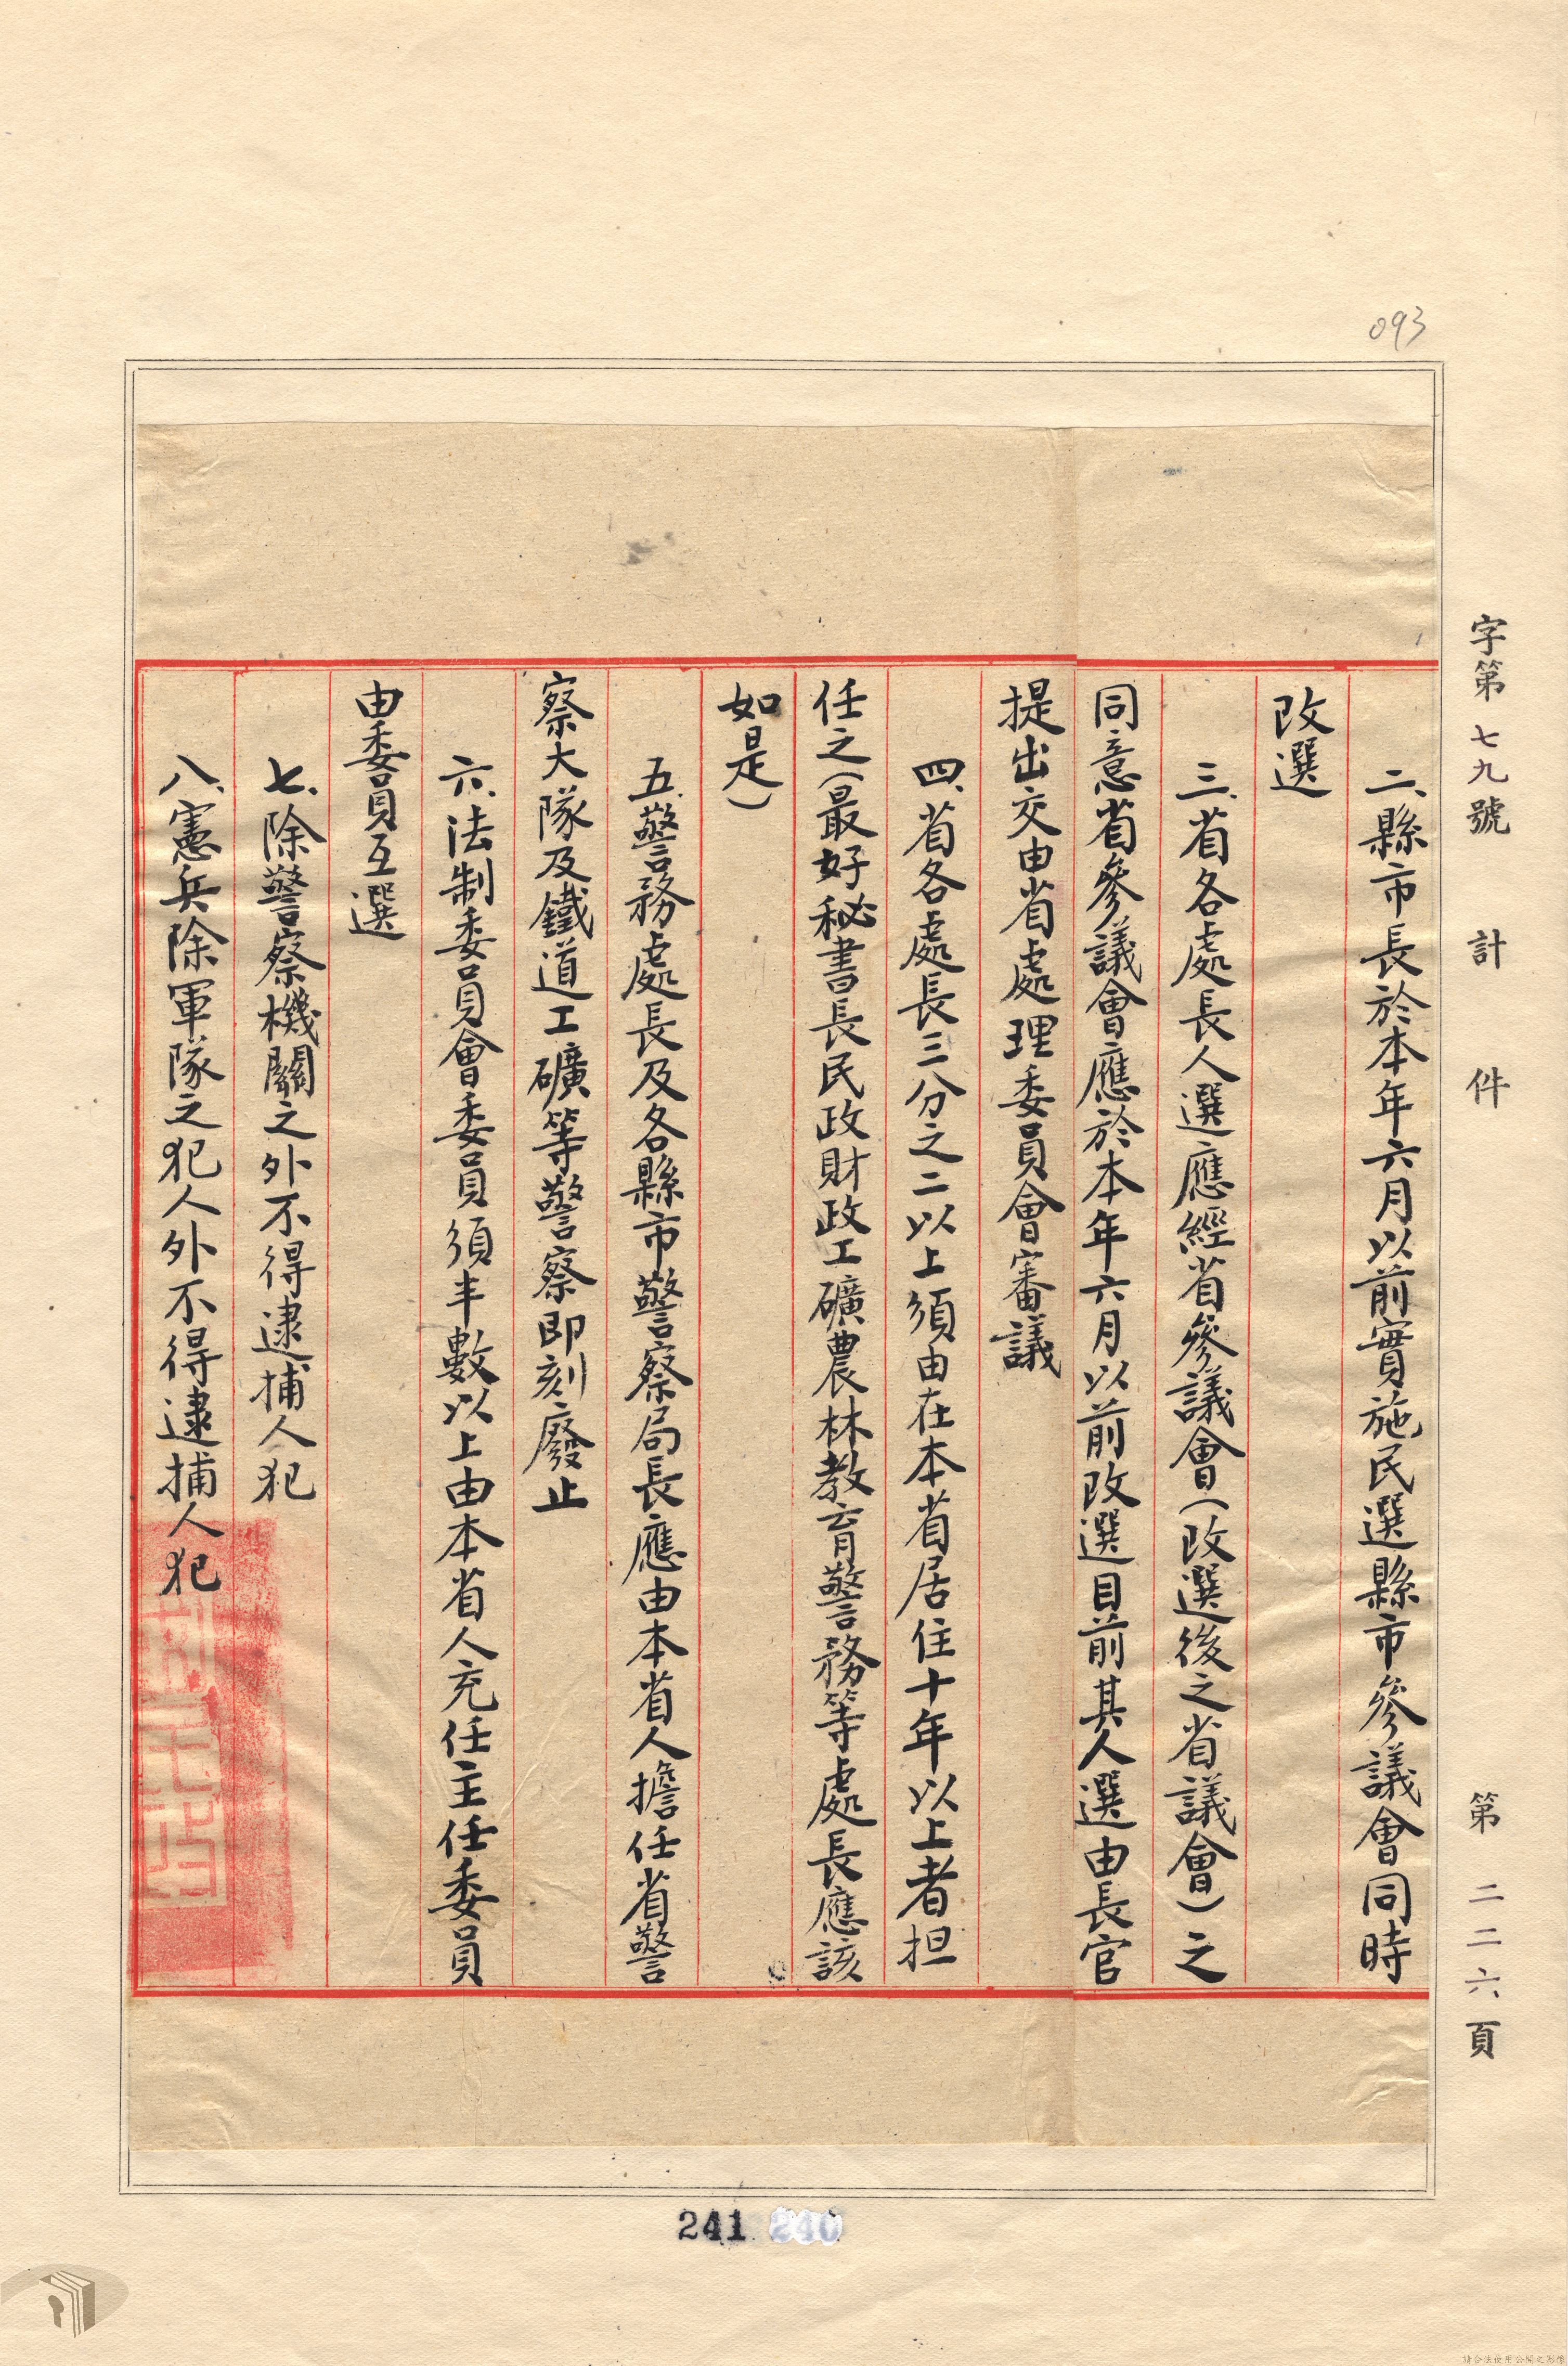 093
字第七九號 計 件 第二二六頁
二、縣市長於本年六月以前實施民選縣市參議會同時
改選
三、省各處長人選應經省參議會(改選後之省議會)之
同意省參議會應於本年六月以前改選目前其人選由長官
提出交由省處理委員會審議
四、省各處長三分之二以上須由在本省居住十年以上者担
任之(最好秘書長民政財政工礦農林教育警務等處長應該
如是)
五、警務處長及各縣市警察局長應由本省人擔任省警
察大隊及鐵道工礦等警察即刻廢止
六、法制委員會委員須半數以上由本省人充任主任委員
由委員互選
七、除警察機關之外不得逮捕人犯
八、憲兵除軍隊之犯人外不得逮捕人犯
241 240
請合法使用公開之影像